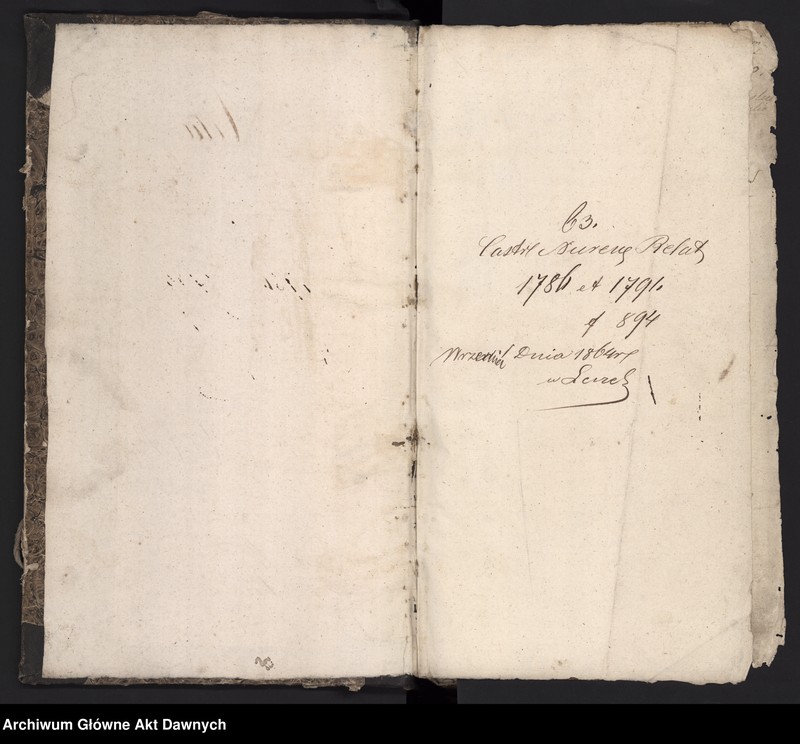 63.
Castr Nurens Relat
1786 et 1791.
f 894
Wrzesień Dnia 1864 r
w
Archiwum Główne Akt Dawnych